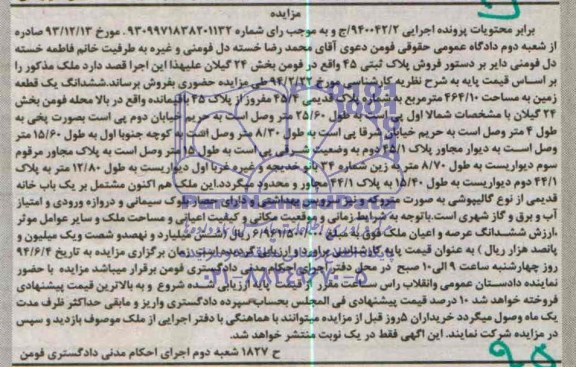 مزایده
برابر محتویات پرونده اجرایی ۹۴۰۰۴۲/۲/ج و به موجب رای شماره ۹۳۰۹۹۷۱۸۳۸۲۰۱۱۳۲ . مورخ ۹۳/۱۲/۱۳ صادره
از شعبه دوم دادگاه عمومی حقوقی فومن دعوی آقای محمد رضا خسته دل فومنی و غیره به طرفیت خانم فاطمه خسته
دل فومنی دایر بر دستور فروش پلاک ثبتی ۴۵ واقع در فومن بخش ۲۴ گیلان علیهذا این اجرا قصد دارد ملک مذکور را
بر اساس قیمت پایه به شرح نظریه کارشناسی مورخ ۹۴/۲/۲۲ طی مزایده حضوری بفروش برساند.ششدانگ یک قطعه
زمین به مساحت ۴۶۴/۱۰ مترمربع به شماره پلاک قدیمی ۴۵/۴ مفروز از پلاک ۴۵ باقیمانده واقع در بالا محله فومن بخش
۲۴ گیلان با مشخصات شمالا اول پی است به طول ۲۵/۶۰ متر وصل است به حریم خیابان دوم پی است بصورت پخی به
طول ۴ متر وصل است به حریم خیابان شرقا پی است به طول ۸/۳۰ متر وصل است به کوچه جنوبا اول به طول ۱۵/۶۰ متر
وصل است به دیوار مجاور پلاک ۴۵/۱ دوم به وضعیت شرقی پی است به طول ۱۵ متر وصل است به پلاک مجاور مرقوم
سوم دیواریست به طول ۸/۷۰ متر به زین شماره ۳۴ بانو خدیجه و غیره غربا اول دیواریست به طول ۱۲/۸۰ متر به پلاک
۴۴/۱ دوم دیواریست به طول ۱۵/۴۰ به پلاک ۴۴/۱ مجاور و محدود میگردد.این ملک هم اکنون مشتمل بر یک باب خانه
قدیمی از نوع گالیپوشی به صورت متروکه و نیز سرویس بهداشتی و دارای حصار بلوک سیمانی و دروازه ورودی و امتیاز
آب و برق و گاز شهری است.باتوجه به شرایط زمانی و موقعیت مکانی و کیفیت اعیانی و مساحت ملک و سایر عوامل موثر
،ارزش ششدانگ عرصه و اعیان ملک فوق به مبلغ ریال (شش میلیارد و نهصدو شصت ویک میلیون و
پانصد هزار ریال ) به عنوان قیمت پایه کارشناسی برآورد و ارزیابی گردیده است.زمان برگزاری مزایده به تاریخ ۹۴/۶/۴
روز چهارشنبه ساعت ۹ الی۱۰ صبح در محل دفتر اجرای احکام مدنی دادگستری فومن برقرار میباشد مزایده با حضور
نماینده دادستان عمومی وانقلاب راس ساعت مقرر از قیمت پایه ارزیابی شده شروع و به بالاترین قیمت پیشنهادی
فروخته خواهد شد ۱۰ درصد قیمت پیشنهادی فی المجلس بحساب سپرده دادگستری واریز و مابقی حداکثر ظرف مدت
یک ماه وصول میگردد خریداران ۵روز قبل از مزایده میتوانند با هماهنگی با دفتر اجرایی از ملک موصوف بازدید و سپس
در مزایده شرکت نمایند. این آگهی فقط در یک نوبت منتشر خواهد شد.
ح ۱۸۲۷ شعبه دوم اجرای احکام مدنی دادگستری فومن